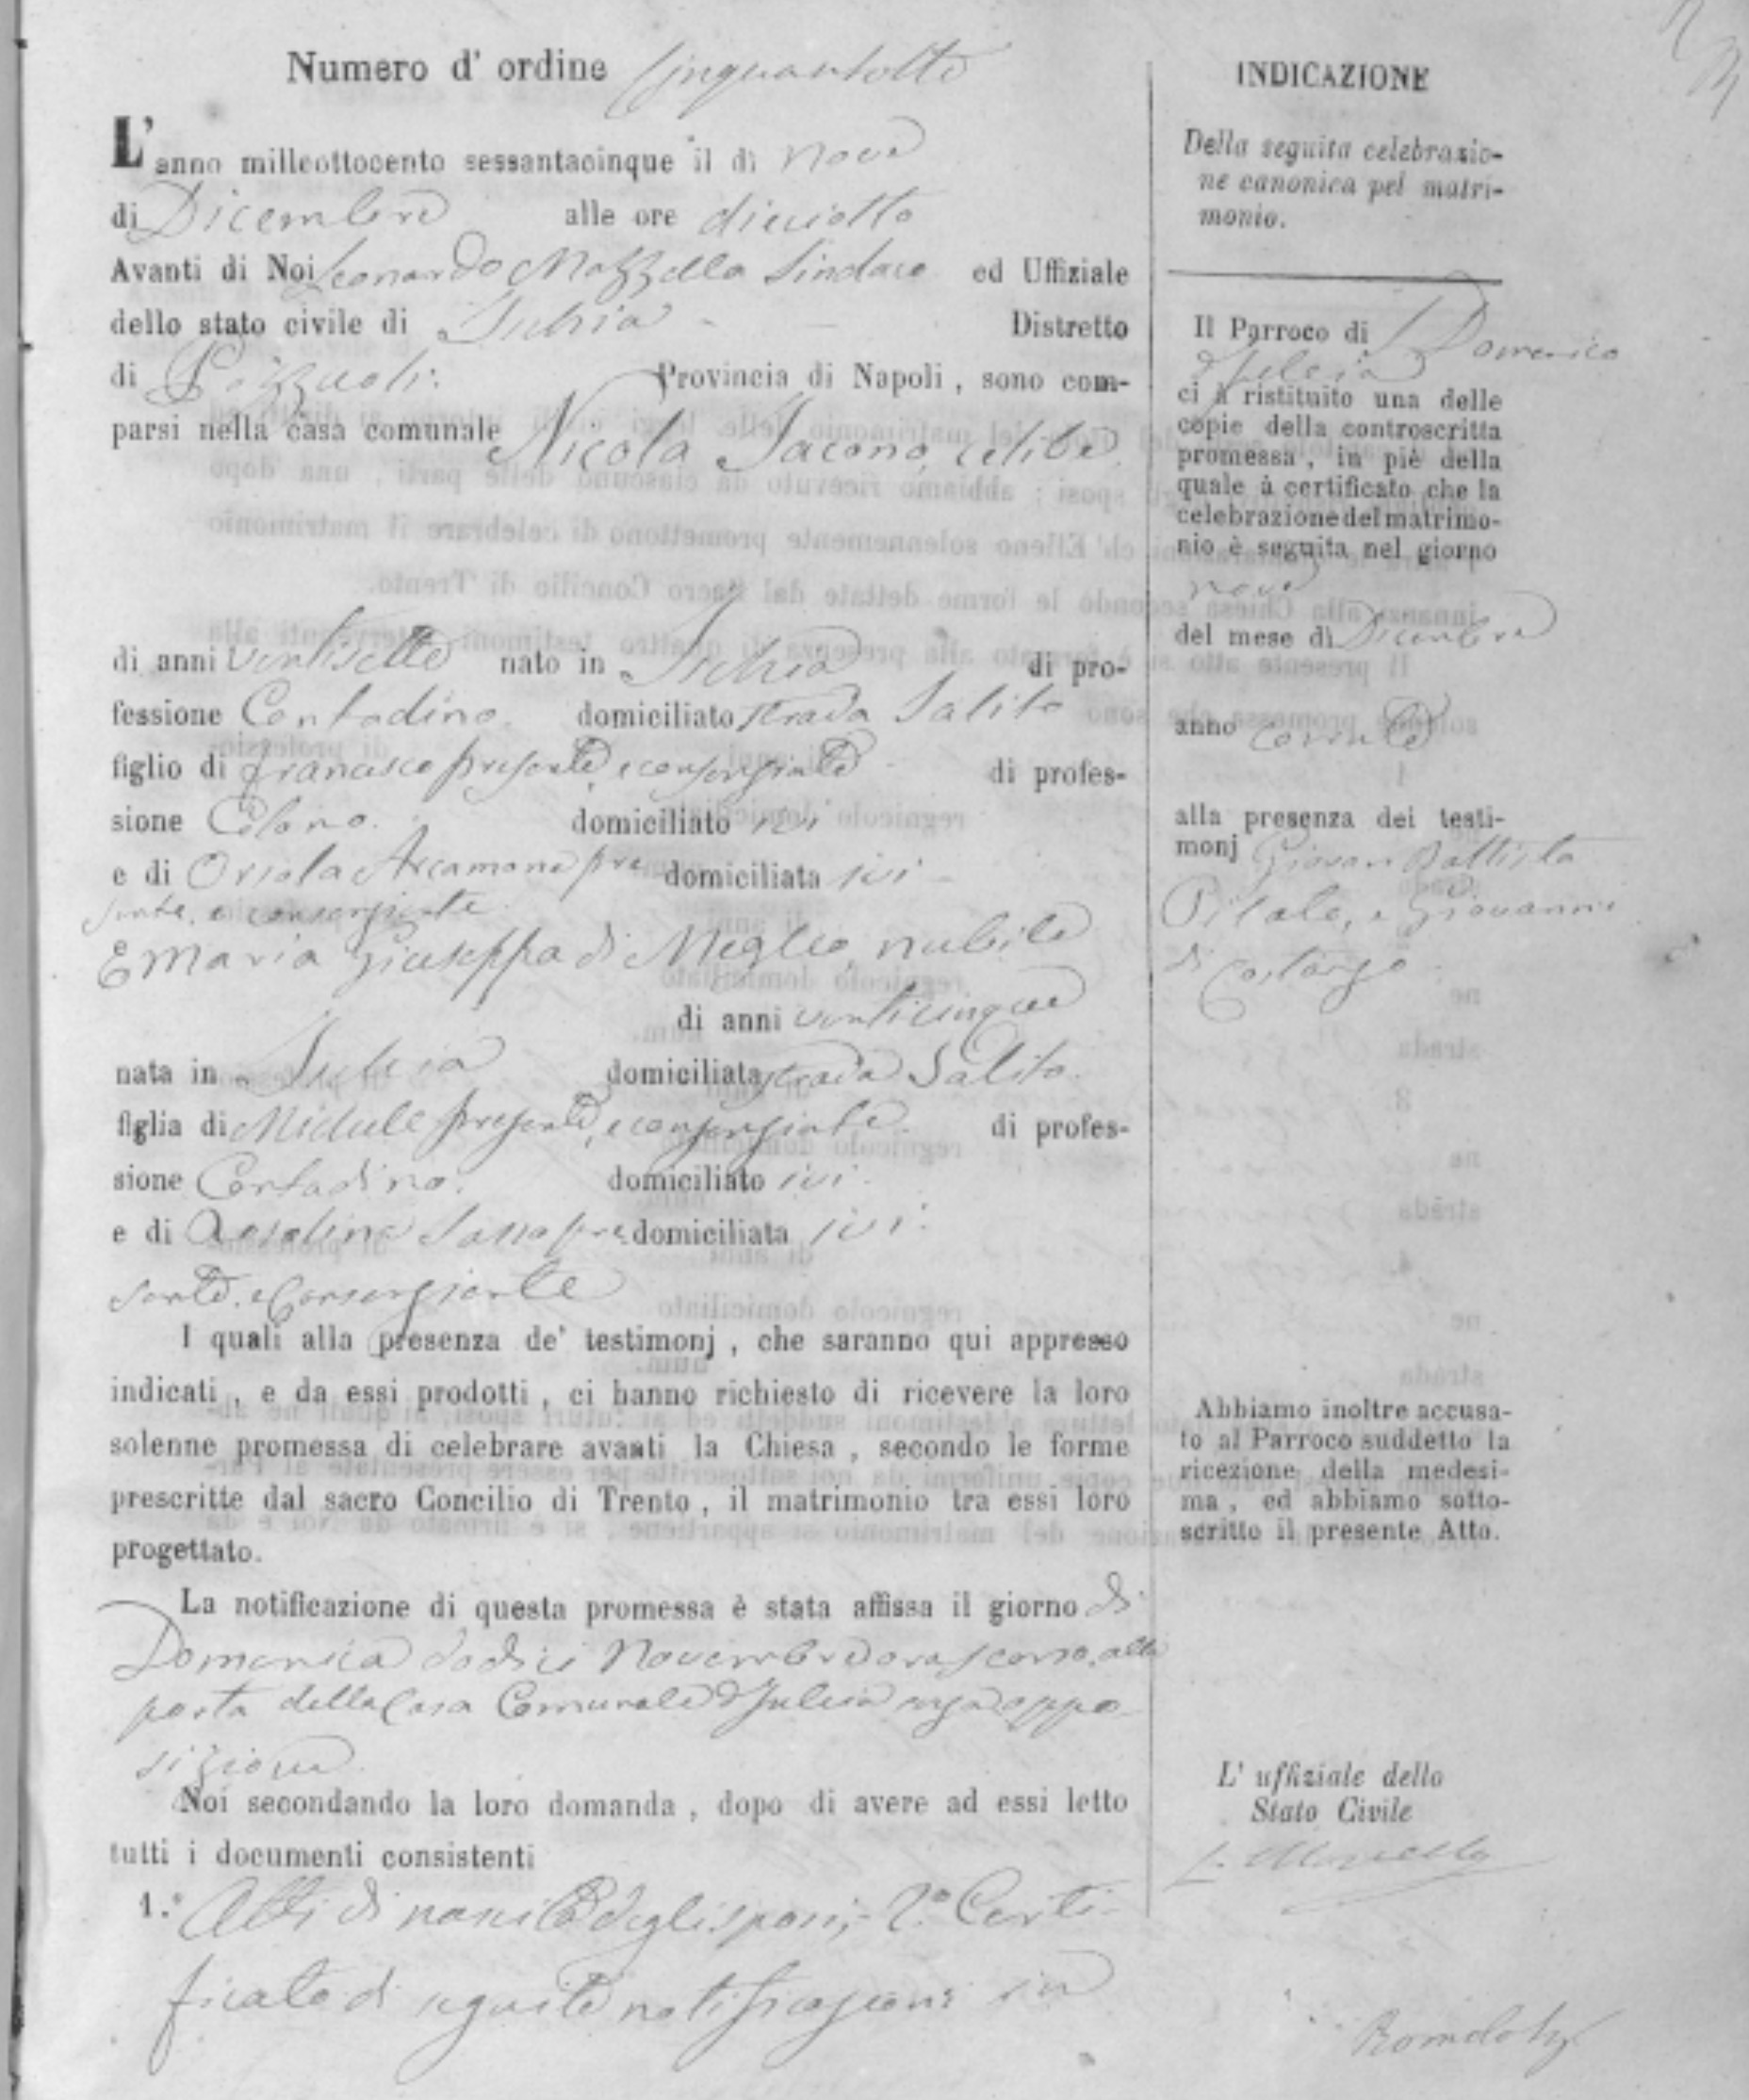 Numero d' ordine Cinquantotto
L'anno milleottocento sessantacinque il di nove
di Dicembre alle ore diciotto
Avanti di Noi Leonardo Mazzella Sindaco ed Uffiziale
dello stato civile di Ischia Distretto
di Pozzuoli. Provincia di Napoli, sono com-
parsi nella casa comunale Nicola Iacono, celibe
di anni ventisette nato in Ischia di pro-
fessione Contadino. domiciliato strada Salito
figlio di Francesco presente, e consenziente di profes-
sione Colono. domiciliato ivi
e di Orsola Arcamone pre domiciliata ivi
sente, e consenziente
E Maria Giuseppa di Meglio, nubile
di anni venticinque
nata in Ischia domiciliata strada Salito.
figlia di Michele presente, e consenziente. di profes-
sione Contadino. domiciliato ivi.
e di Rosolina Sasso pre domiciliata ivi.
sente, e Consenziente
I quali alla presenza de' testimonj, che saranno qui appresso
indicati, e da essi prodotti, ci hanno richiesto di ricevere la loro
solenne promessa di celebrare avanti la Chiesa, secondo le forme
prescritte dal sacro Concilio di Trento, il matrimonio tra essi loro
progettato.
La notificazione di questa promessa è stata affissa il giorno di
Domenica dodici Novembre ora scorso, alla
porta della Casa Comunale d'Ischia senza oppo
sizione
Noi secondando la loro domanda, dopo di avere ad essi letto
tutti i documenti consistenti
1.° Atti di nascita degli sposi; 2.° Certi-
ficato di seguite notificazioni in
INDICAZIONE
Della seguita celebrazio-
ne canonica pel matri-
monio.
Il Parroco di S. Domenico
d'Ischia
ci à ristituito una delle
copie della controscritta
promessa, in piè della
quale à certificato che la
celebrazione del matrimo-
nio è seguita nel giorno
nove
del mese di Dicembre
anno corrente
alla presenza dei testi-
monj Giovan Battista
Pilato, e Giovanni
di Costanzo
Abbiamo inoltre accusa-
to al Parroco suddetto la
ricezione della medesi-
ma, ed abbiamo sotto-
scritto il presente Atto.
L' uffiziale dello
Stato Civile
L. Mazzella